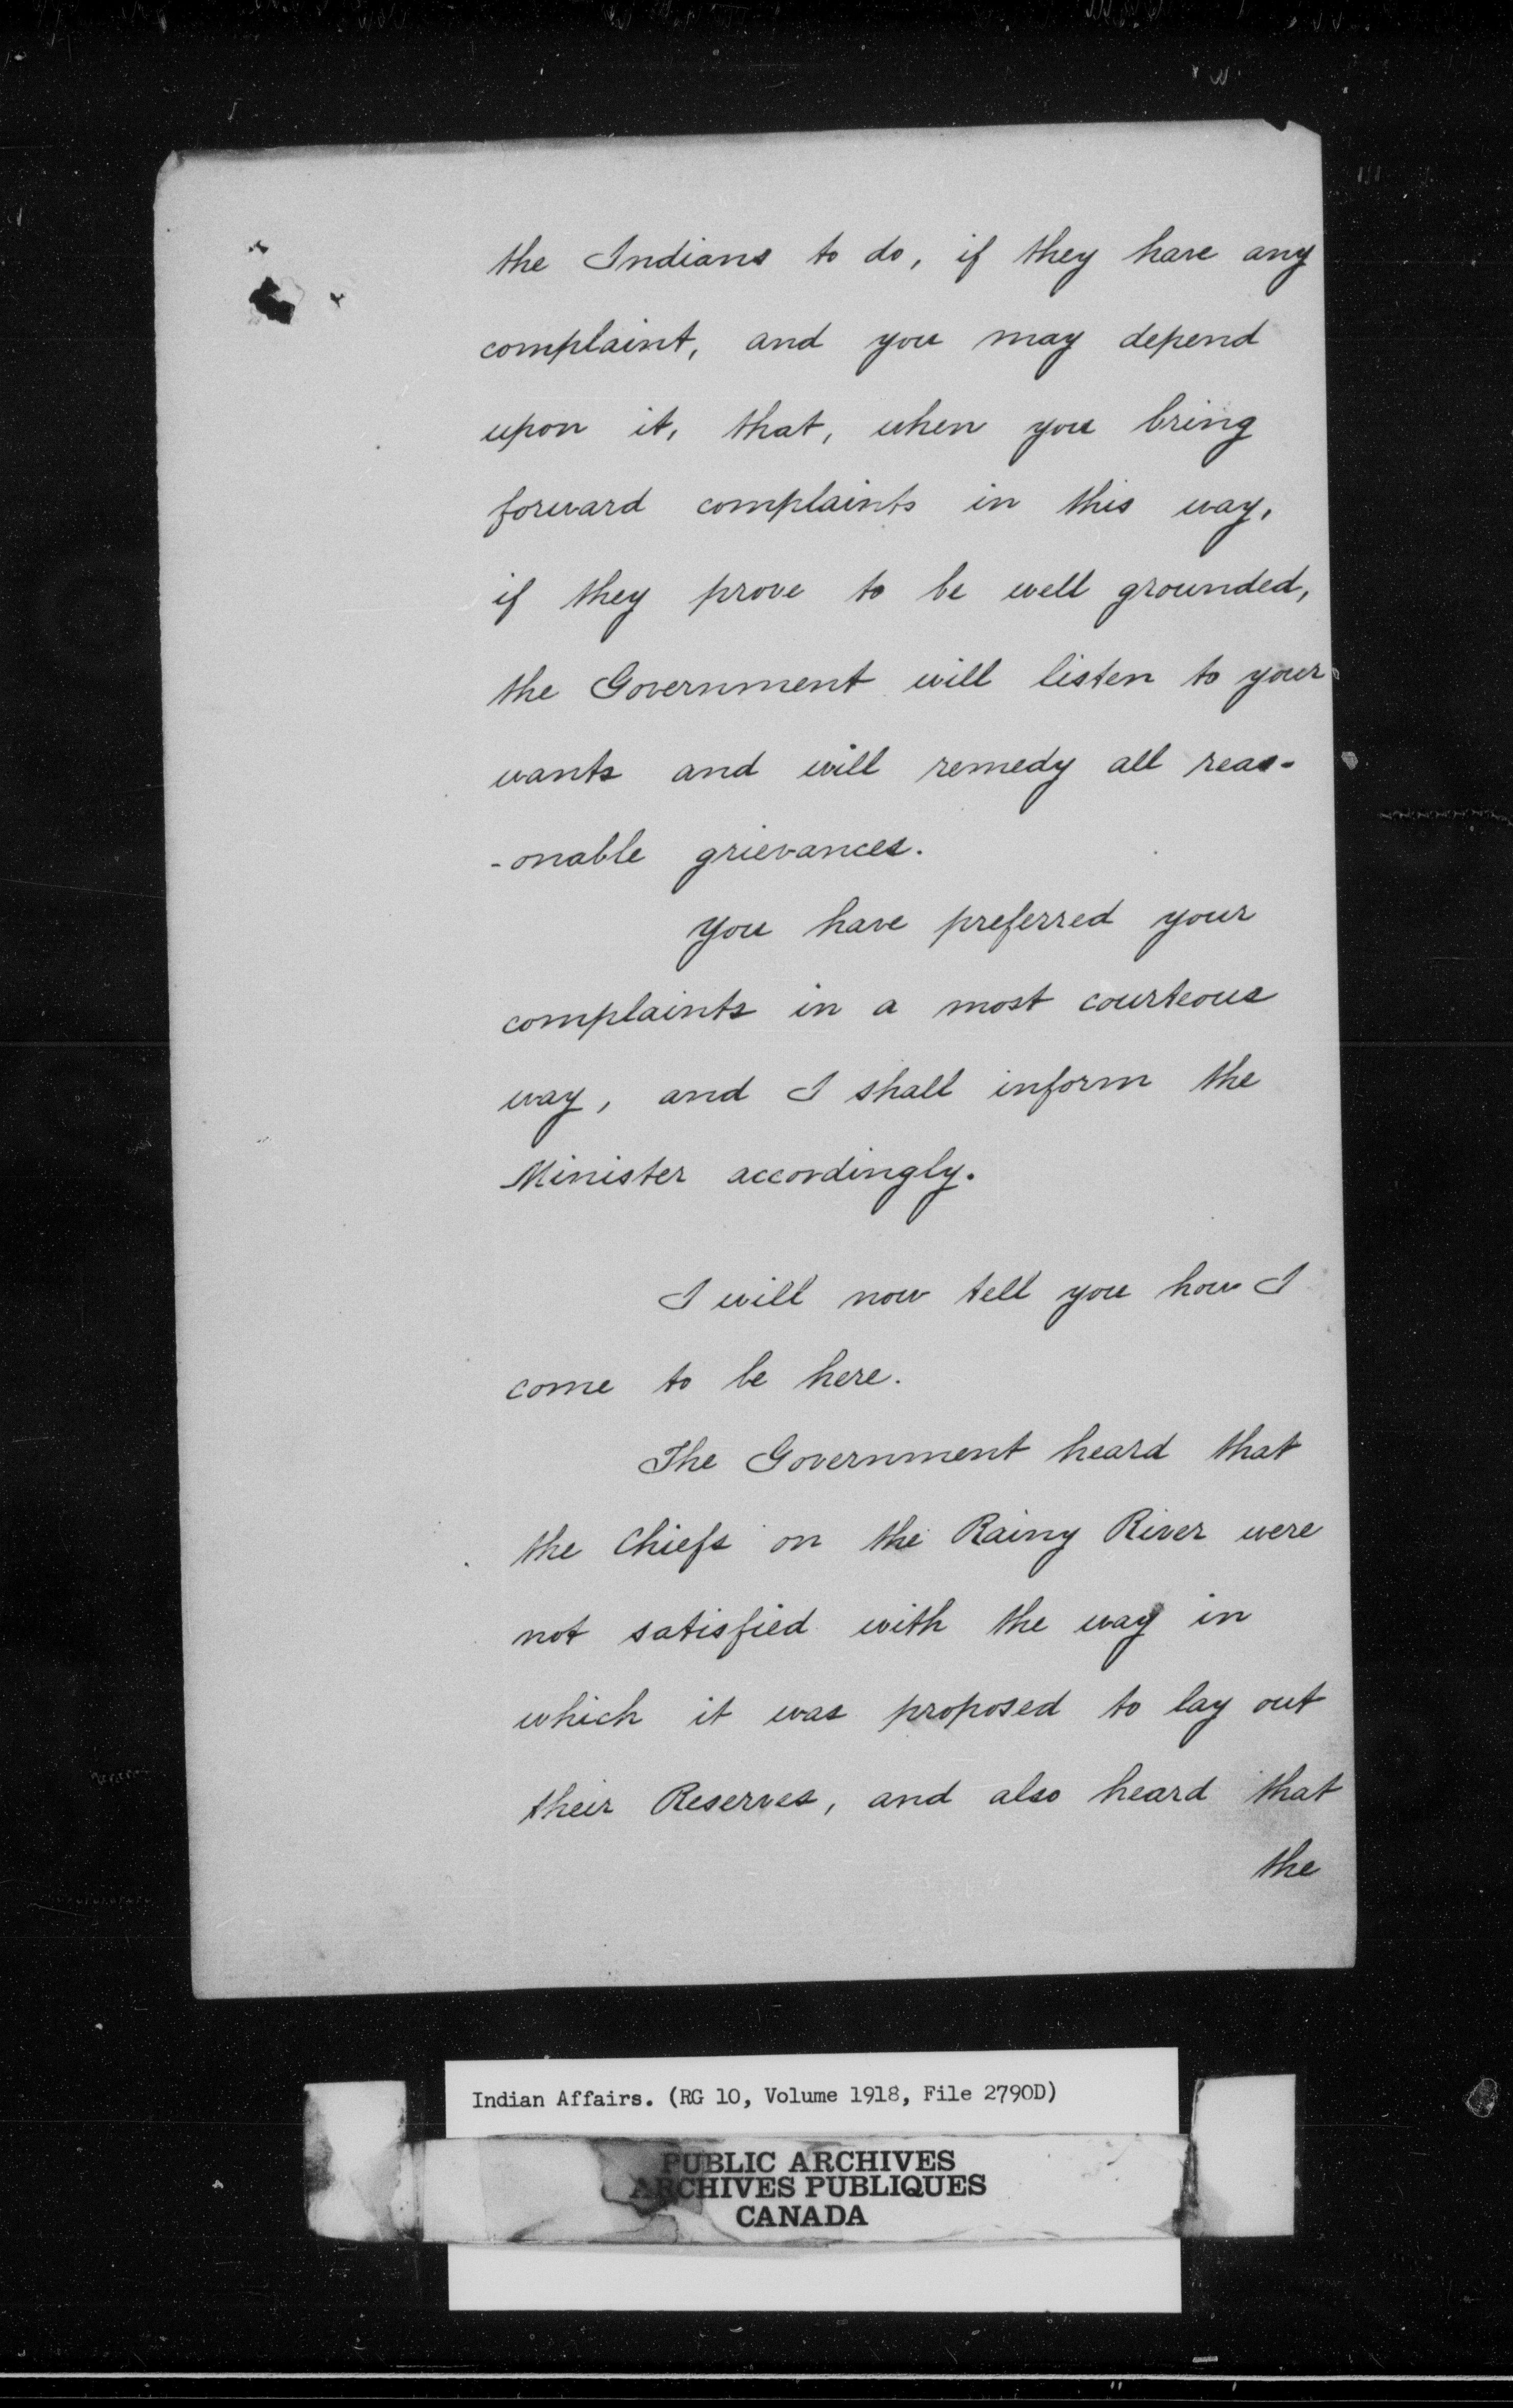 the Indians to do, if they have any
complaint, and you may depend
upon it, that, when you bring
forward complaints in this way,
if they prove to be well grounded,
the Government will listen to your
wants and will remedy all reas-
-onable grievances.
You have preferred your
complaints in a most courteous
way, and I shall inform the
Minister accordingly.
I will now tell you how I
come to be here.
The Government heard that
the Chiefs on the Rainy River were
not satisfied with the way in
which it was proposed to lay out
their Reserves, and also heard that
the
Indian Affairs. (RG 10, Volume 1918, File 2790D)
PUBLIC ARCHIVES
ARCHIVES PUBLIQUES
CANADA